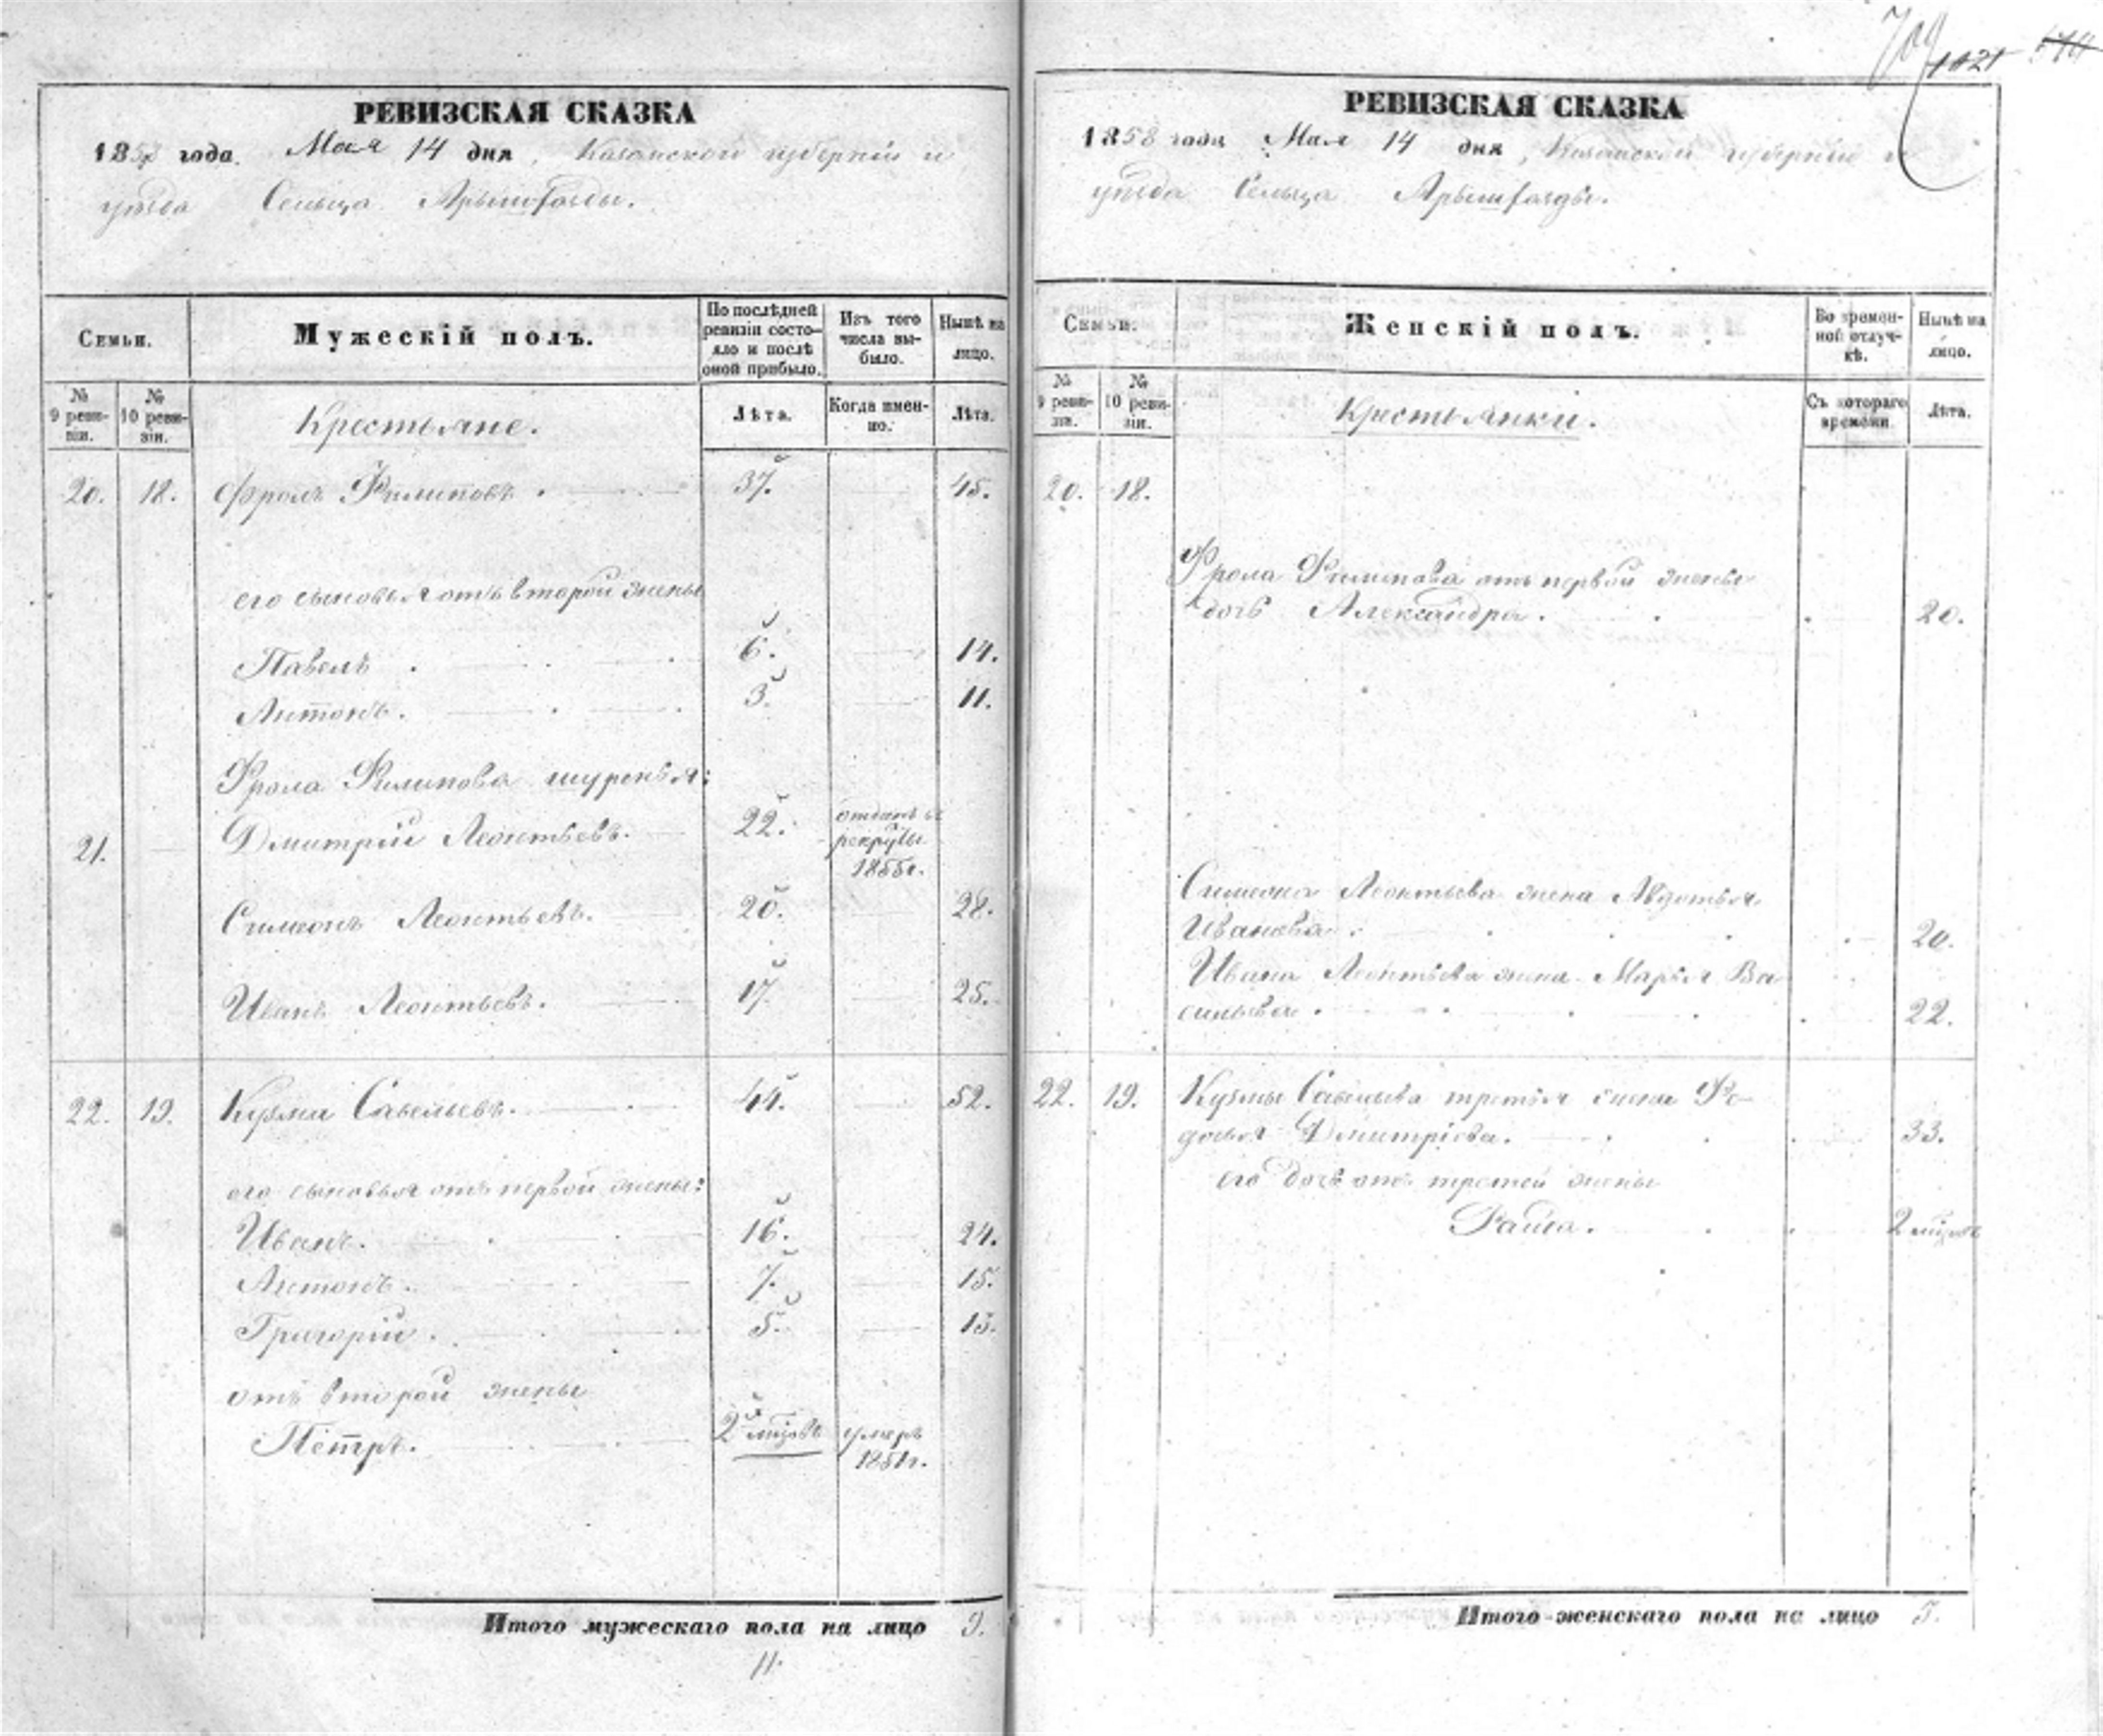 РЕВИЗСКАЯ СКАЗКА
1858 года Мая 14 дня, Казанской губерніи и
уѣзда Сельца Арышхазды.
Семьи.
Мужескій полъ.
По послѣдней ревизіи состояло и послѣ оной прибыло.
Изъ того числа выбыло.
Нынѣ на лицо.
№ 9 ревизіи.
№ 10 ревизіи.
Крестьяне.
Лѣта.
Когда именно.
Лѣта.
20. 18. Фролъ Филиповъ. 37. 45.
его сыновья отъ второй жены
Павелъ. 6. 14.
Антонъ. 3. 11.
Фрола Филипова шурья:
21. Дмитрій Леонтьевъ. 22. отданъ въ
рекруты
1855г.
Симеонъ Леонтьевъ. 20. 28.
Иванъ Леонтьевъ. 17. 25.
22. 19. Кузма Савельевъ. 44. 52.
его сыновья отъ первой жены:
Иванъ. 16. 24.
Антонъ. 7. 15.
Григорій. 5. 13.
отъ второй жены
Петръ. 2 мѣсяцъ умеръ
1851г.
Итого мужескаго пола на лицо 9.
11.
709 1021
РЕВИЗСКАЯ СКАЗКА
1858 года Мая 14 дня, Казанской губерніи и
уѣзда Сельца Арышхазды.
Семьи.
Женскій полъ.
Во временной отлучкѣ.
Нынѣ на лицо.
№ 9 ревизіи.
№ 10 ревизіи.
Крестьянки.
Съ котораго времени.
Лѣта.
20. 18.
Фрола Филипова отъ первой жены
дочь Александра. 20.
Симеона Леонтьева жена Авдотья
Иванова. 20.
Ивана Леонтьева жена Марья Ва
сильева. 22.
22. 19. Кузмы Савельева третья жена Фе-
досья Дмитріева. 33.
его дочь отъ третей жены
Раиса. 2 мѣсяц
Итого женскаго пола на лицо 5.